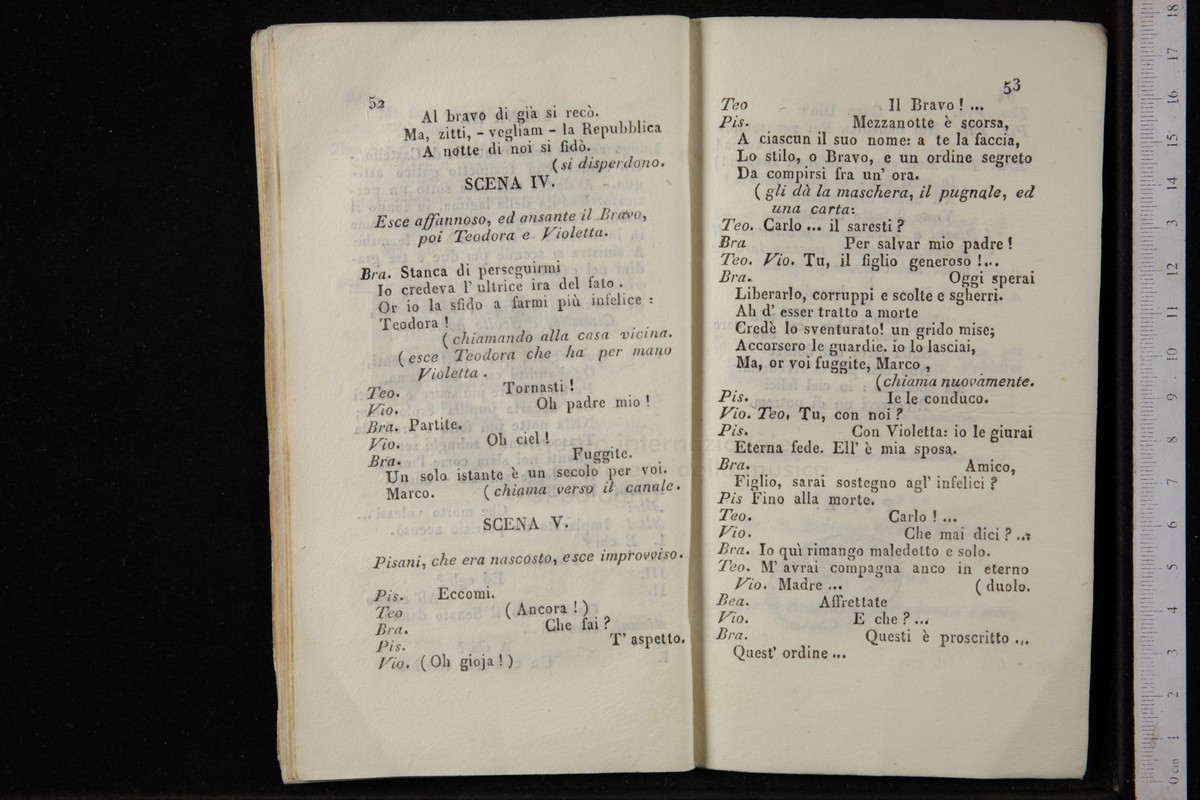 52
Al bravo di già si recò.
Ma, zitti, - vegliam - la Repubblica
A notte di noi si fidò.
(si disperdono.
SCENA IV.
Esce affannoso, ed ansante il Bravo,
poi Teodora e Violetta.
Bra. Stanca di perseguirmi
Io credeva l' ultrice ira del fato .
Or io la sfido a farmi più infelice :
Teodora !
( chiamando alla casa vicina.
( esce Teodora che ha per mano
Violetta .
Teo. Tornasti !
Vio. Oh padre mio !
Bra. Partite.
Vio. Oh ciel !
Bra. Fuggite.
Un solo istante è un secolo per voi.
Marco. ( chiama verso il canale.
SCENA V.
Pisani, che era nascosto, esce improvviso.
Pis. Eccomi.
Teo ( Ancora ! )
Bra. Che fai ?
Pis. T' aspetto.
Vio. ( Oh gioja ! )
53
Teo Il Bravo ! ...
Pis. Mezzanotte è scorsa,
A ciascun il suo nome: a te la faccia,
Lo stilo, o Bravo, e un ordine segreto
Da compirsi fra un' ora.
( gli dà la maschera, il pugnale, ed
una carta:
Teo. Carlo ... il saresti ?
Bra Per salvar mio padre !
Teo. Vio. Tu, il figlio generoso !...
Bra. Oggi sperai
Liberarlo, corruppi e scolte e sgherri.
Ah d' esser tratto a morte
Credè lo sventurato! un grido mise;
Accorsero le guardie. io lo lasciai,
Ma, or voi fuggite, Marco ,
(chiama nuovamente.
Pis. Ie le conduco.
Vio. Teo. Tu, con noi ?
Pis. Con Violetta: io le giurai
Eterna fede. Ell' è mia sposa.
Bra. Amico,
Figlio, sarai sostegno agl' infelici ?
Pis Fino alla morte.
Teo. Carlo ! ...
Vio. Che mai dici ? ...
Bra. Io quì rimango maledetto e solo.
Teo. M' avrai compagna anco in eterno
Vio. Madre ... ( duolo.
Bea. Affrettate
Vio. E che ? ...
Bra. Questi è proscritto ...
Quest' ordine ...